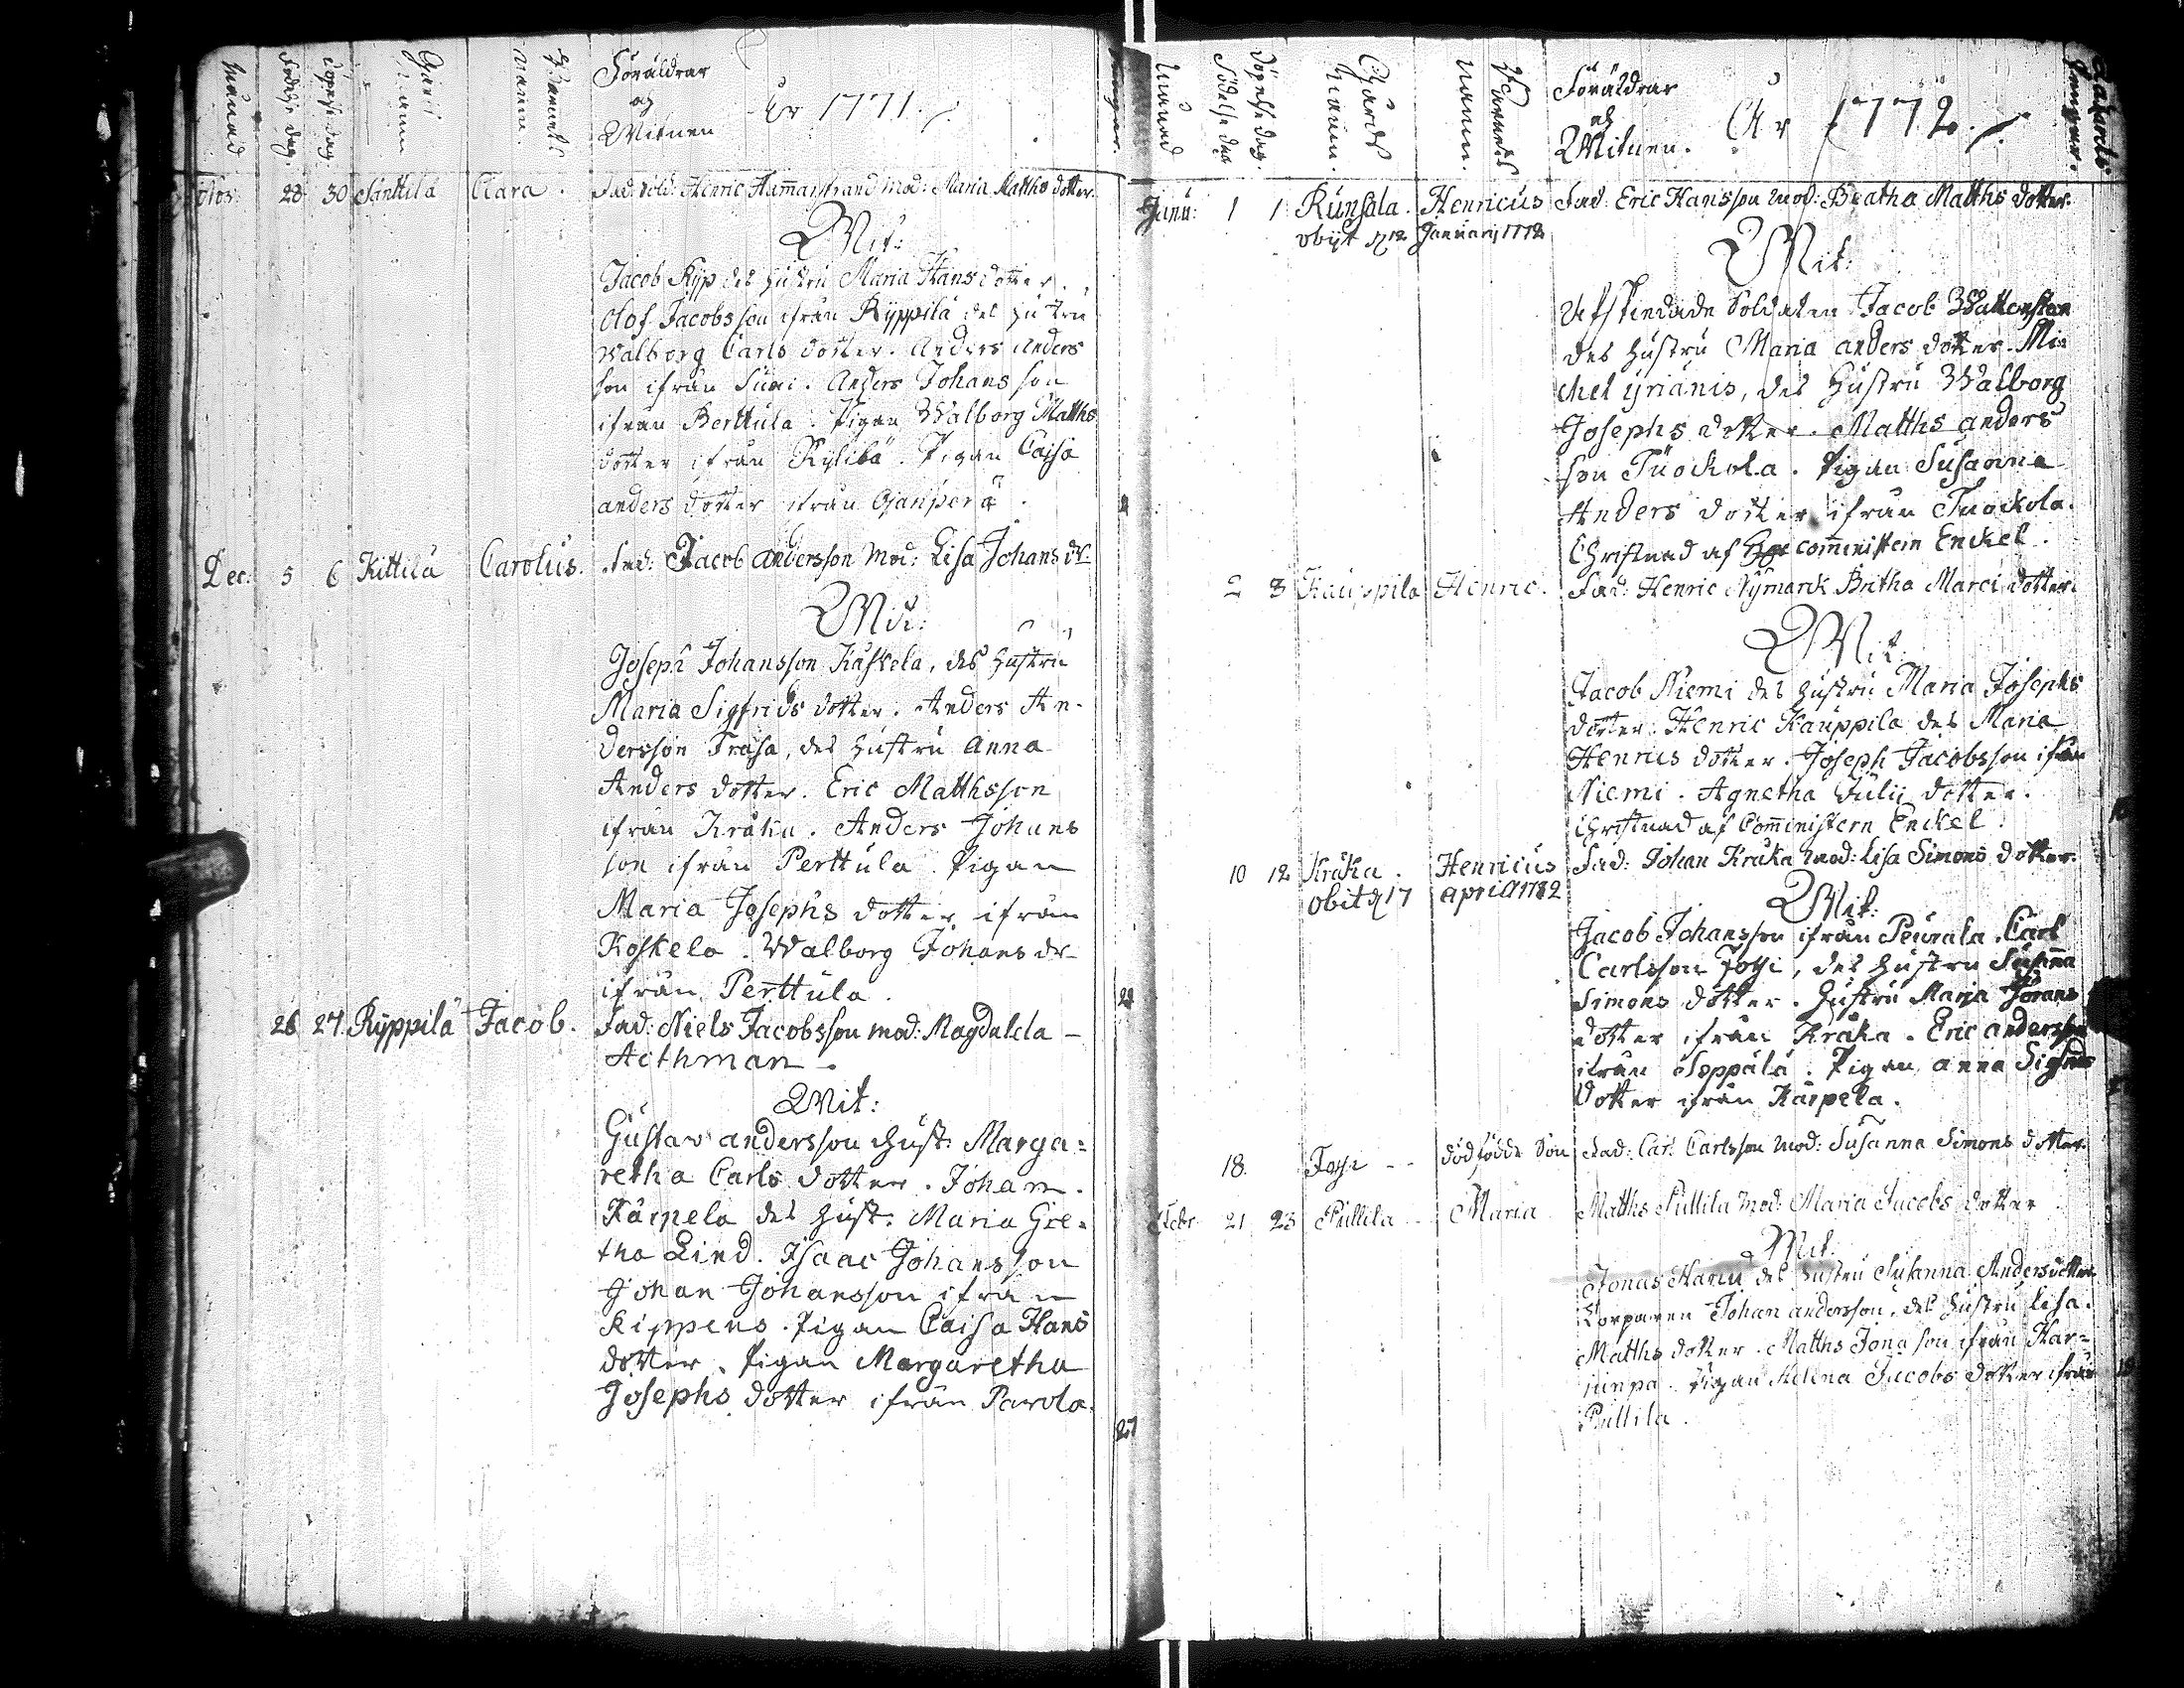 Månad
Födelse dag
Döpelse dag
Gårds Namn
Barnets namn
Föräldrar
och
Witnen
År 1771.
Nov: 28 30 Sänttilä Clara. Fad: Sold: Henric Hammarstrand Mod: Maria Matths dotter.
Wit:
Jacob Kyp des hustru Maria Hans dotter.
Olof Jacobsson ifrån Ryppilä des hustru
Walborg Carls dotter. Anders Anders
son ifrån Suni. Anders Johans son
ifrån Berttula. Pigan Walborg Matths
dotter ifrån Pigan Cajsa
anders dotter ifrån Ojanperä.
Dec: 5 6 Kittilä Carolus. Fad: Jacob andersson Mod: Lisa Johans dr
Wit:
Joseph Johansson Käskela, des hustru
Maria Sigfrids dotter. Anders An-
dersson Frasa, des hustru Anna
Anders dotter. Eric Matthsson
ifrån Kråka. Anders Johans
son ifrån Perttula. Pigan
Maria Josephs dotter ifrån
Koskela. Walborg Johans dr
ifrån Perttula.
26 27. Ryppilä Jacob. Fad: Niels Jacobsson mod: Magdalela
Aethman.
Wit:
Gustav andersson hust: Marga=
retha Carls dotter. Johan.
Kärpela des hust: Maria Gre=
tha Lind. Isaac Johansson
Johan Johansson ifrån
Kippens. Pigan Caisa Hans
dotter. Pigan Margaretha
Josephs dotter ifrån Parola.
Månad
Födelse dag
Döpelse dag
Gårds Namn
Barnets Namn
Föräldrar
och
Witnen.
År 1772.
Janu: 1 1 Runsala. Henricus Fad: Eric Hansson Mod: Beatha Matths dotter.
obijt d 12 Januarij 1772
Wit:
Afskiedade Soldaten Jacob
des hustru Maria anders dotter. Mi=
chel yrjänis, des hustru Walborg
Josephs dotter. Matths anders
son Tuockola. Pigan Susanna
Anders dotter ifrån Tuockola.
Christnad af comministern Enckel.
2 3 Kauppila Henric. Fad: Henric Nymarck Britha Marci dotter.
Wit
Jacob Niemi des hustru Maria Josephs
dotter. Henric Kauppila des Maria
Henrics dotter. Joseph Jacobsson ifrån
Niemi. Agnetha Julij dotter.
Christnad af Comministern Enckel.
10 12 Kråka. Henricus Fad: Johan Kråka mod: Lisa Simons dotter.
obit d 17 april 1782
Wit:
Jacob Johansson ifrån Peurala. Carl
Carlsson Joge, des hustru Susanna
Simons dotter. hustru Marja Jörans
dotter ifrån Kråka. Eric andersson
ifrån Seppälä. Pigan anna Sigfrids
dotter ifrån Kärpela.
18. död födde Son Fad: Carl Carlsson Mod: Susanna Simons dotter.
Febr 21 23 Pullila Maria Matths Pullila Mod: Maria Jacobs dotter
Wit.
Jonas Harju des hustru Susanna Anders dotter
Torparen Johan andersson, des hustru Lisa
Matths dotter. Matths Jona son ifrån Har=
junpä. Pigan Helena Jacobs dotter ifrån
Pullila.